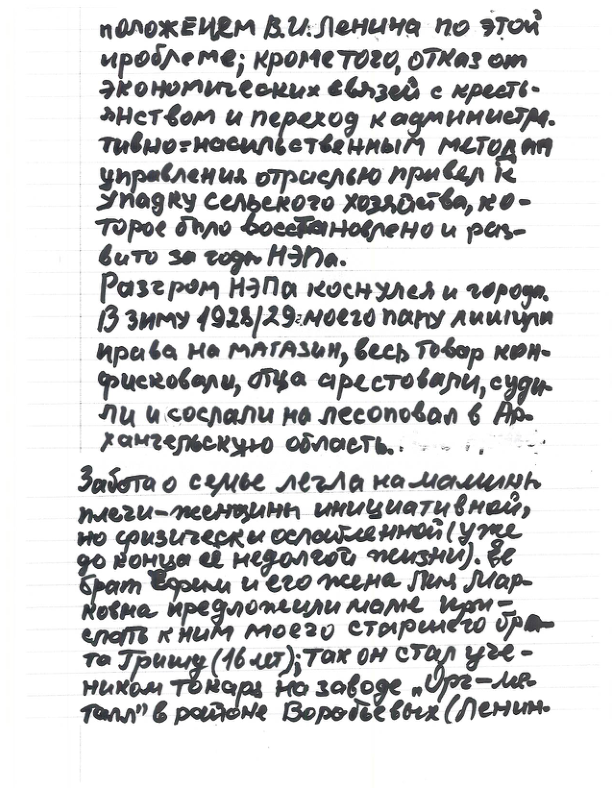 положением В.И. Ленина по этой
проблеме; кроме того, отказ от
экономических связей с кресть-
янством и переход к администра-
тивно-насильственным методам
управления отраслью привел к
упадку сельского хозяйства, ко-
торое было восстановлено и раз-
вито за годы НЭПа.
Разгром НЭПа коснулся и города.
В зиму 1928/29 моего папу лишили
права на магазин, весь товар кон-
фисковали, отца арестовали, суди-
ли и сослали на лесоповал в Ар-
хангельскую область.
Забота о семье легла на мамины
плечи-женщины инициативной,
но физически ослабленной (уже
до конца её недолгой жизни). Её
брат Ефим и его жена Лия Мар-
ковна предложили маме при-
слать к ним моего старшего бра-
та Гришу (16 лет); так он стал уче-
ником токаря на заводе „Орг-ме-
талл" в районе Воробьевых (Ленин-